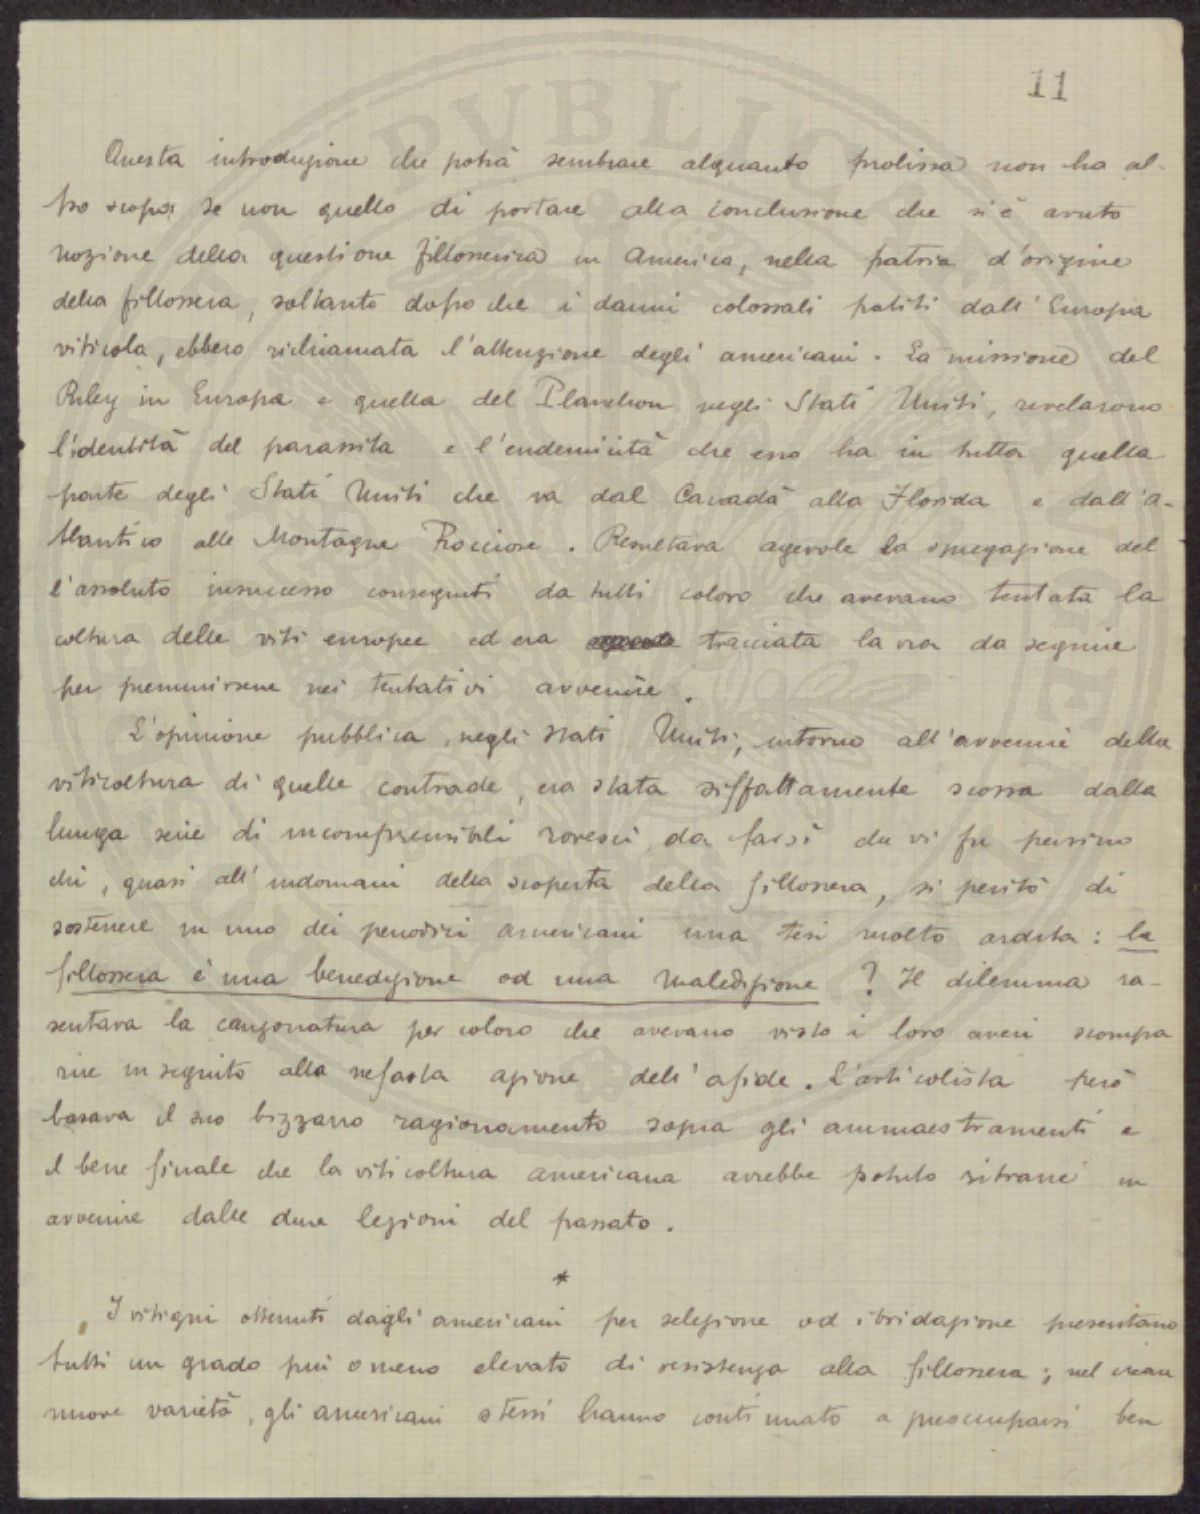 11
Questa introduzione che potrà sembrare alquanto prolissa non ha al-
tro scopo se non quello di portare alla conclusione che si è avuto
nozione della questione fillosserica in America, nella patria d'origine
della fillossera, soltanto dopo che i danni colossali patiti dall'Europa
viticola, ebbero richiamata l'attenzione degli americani. La missione del
Riley in Europa e quella del Planchon negli Stati Uniti, revelarono
l'identità del parassita e l'endemicità che esso ha in tutta quella
parte degli Stati Uniti che va dal Canadà alla Florida e dall'A-
tlantico alle Montagne Rocciose. Resultava agevole la spiegazione del
l'assoluto insuccesso conseguiti da tutti coloro che avevano tentata la
coltura delle viti europee ed era tracciata la via da seguire
per premunirsene nei tentativi avvenire.
L'opinione pubblica, negli Stati Uniti, intorno all'avvenire della
viticoltura di quelle contrade, era stata siffattamente scossa dalla
lunga serie di incomprensibili rovesci, da farsi che vi fu persino
chi, quasi all'indomani della scoperta della fillossera, si peritò di
sostenere in uno dei periodici americani una tesi molto ardita: la
fillossera è una benedizione od una maledizione? Il dilemma ra-
sentava la canzonatura per coloro che avevano visto i loro averi scompa
rire in seguito alla nefasta azione dell'afide. L'articolista però
basava il suo bizzarro ragionamento sopra gli ammaestramenti e
il bene finale che la viticoltura americana avrebbe potuto ritrarre in
avvenire dalle dure lezioni del passato.
*
I vitigni ottenuti dagli americani per selezione od ibridazione presentano
tutti un grado più o meno elevato di resistenza alla fillossera; nel creare
nuove varietà, gli americani stessi hanno continuato a preoccuparsi ben